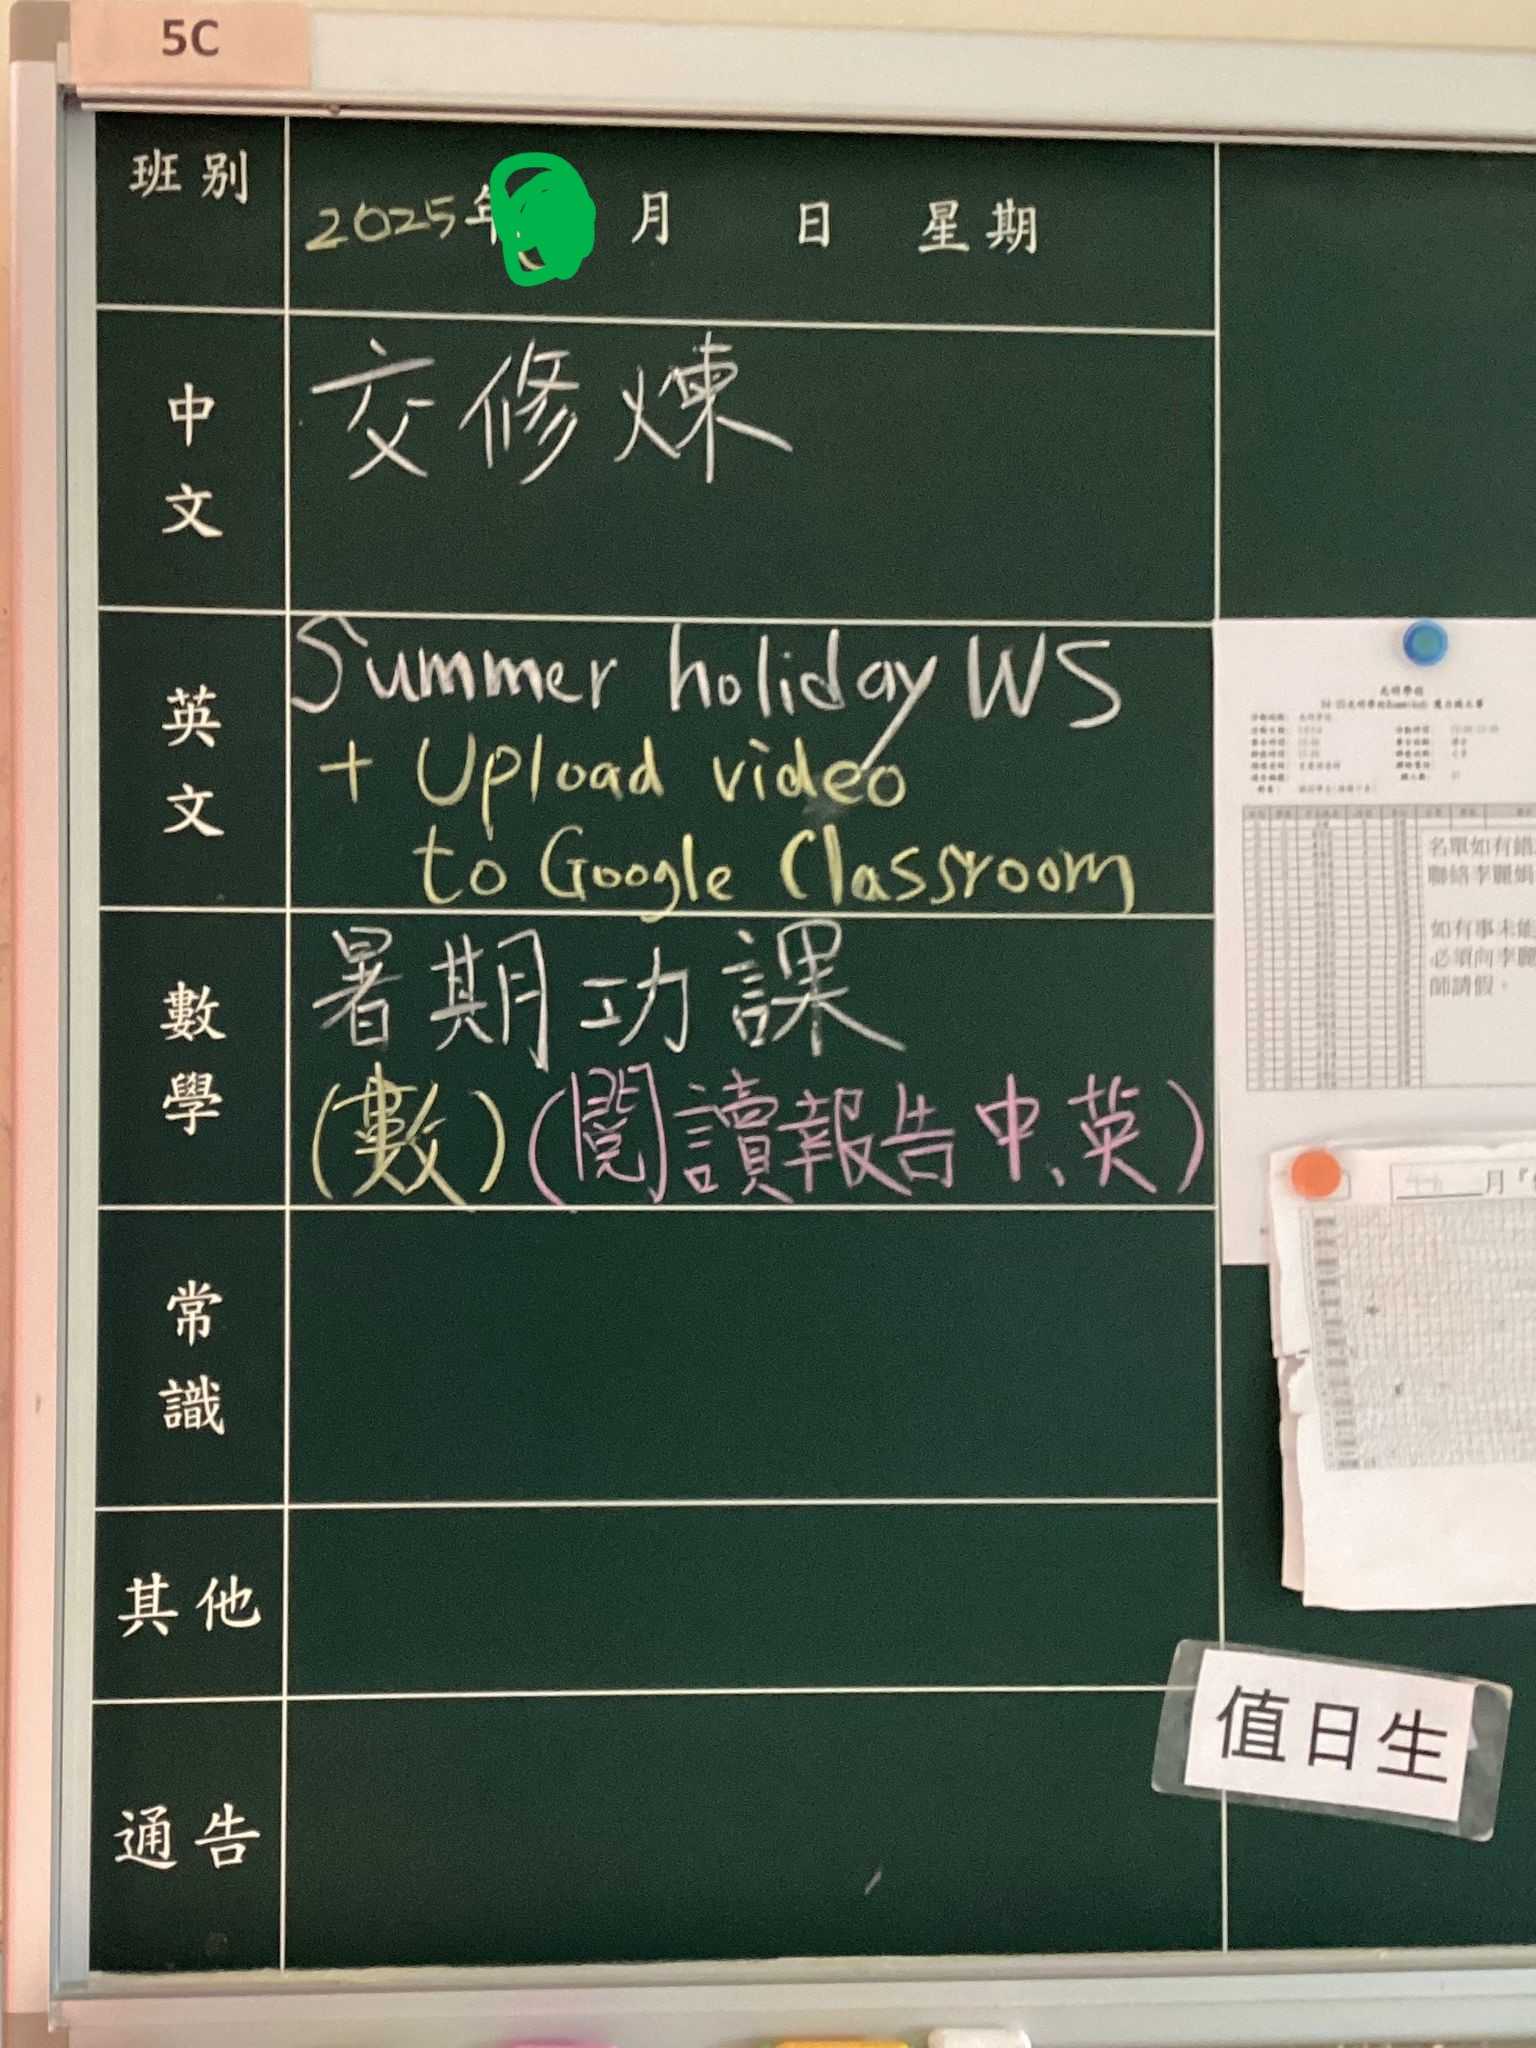 5C
班別
2025年 月 日 星期
中文
交修煉
英文
Summer holiday WS
+ Upload video
to Google Classroom
數學
暑期功課
(數)(閱讀報告中、英)
常識
其他
通告
名單如有錯
聯絡李麗娟
如有事未能
必須向李麗
師請假。
月
值日生